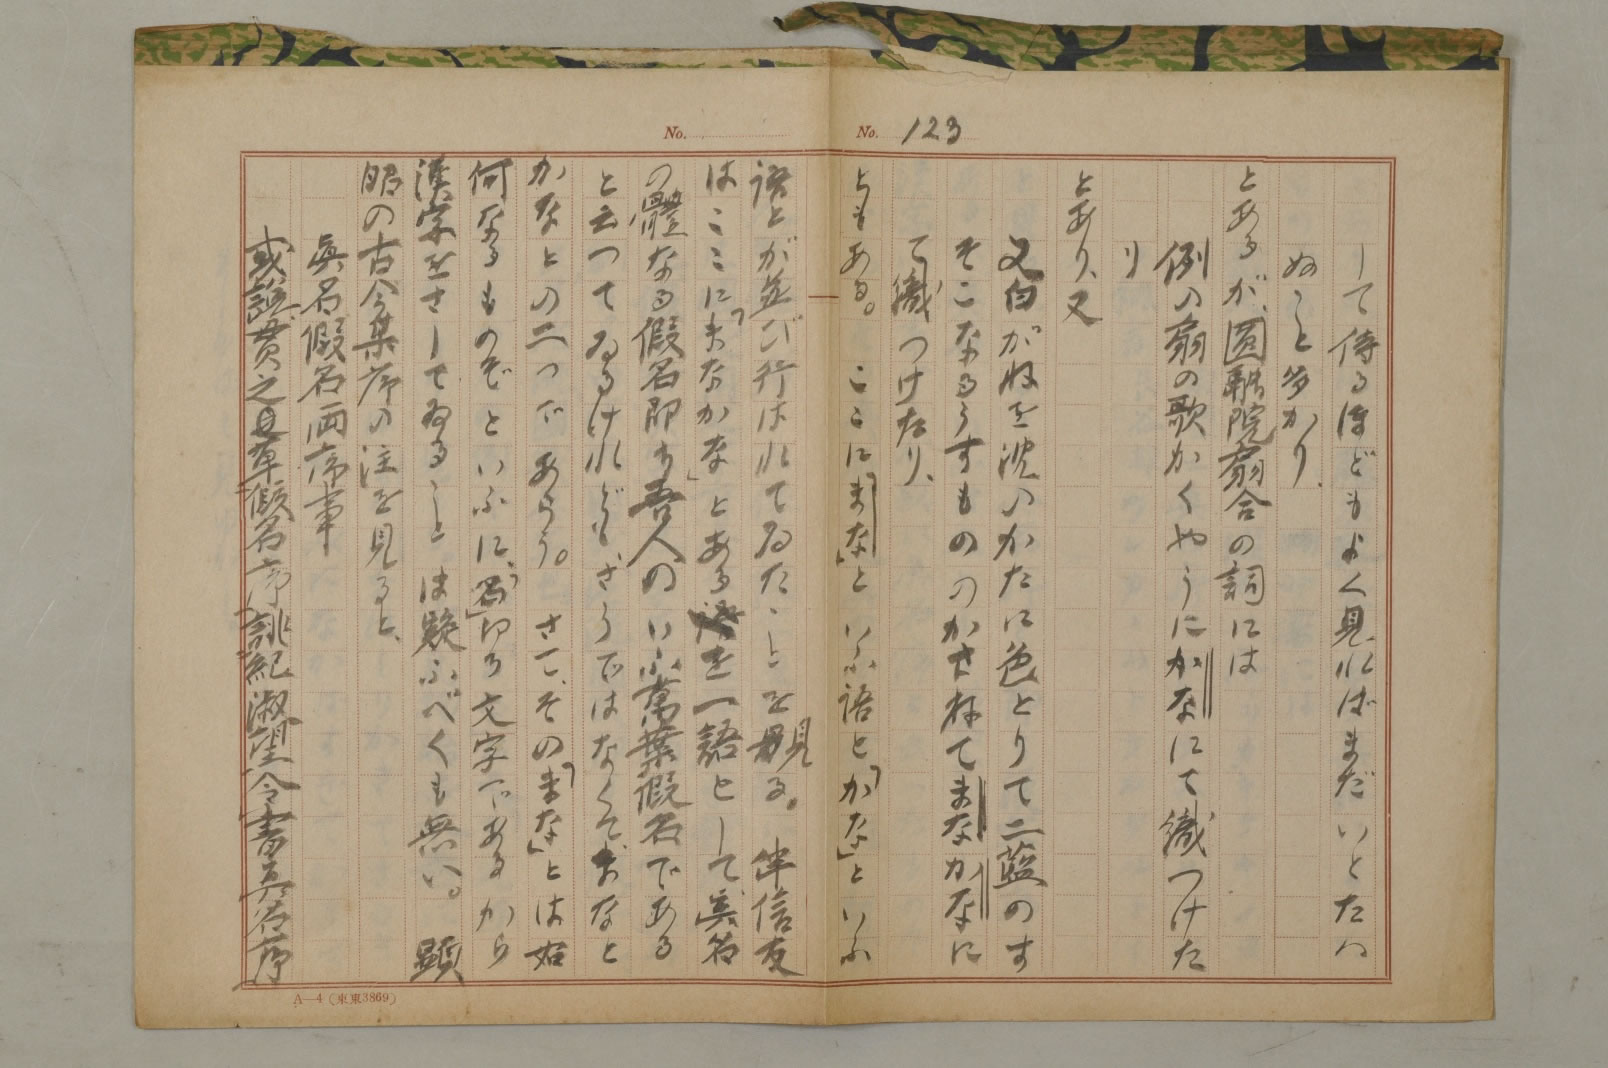 No. 123
No.
して侍るほどもよく見ればまだいとたへ
ぬこと多かり、
とあるが、圓融院扇合の詞には
例の扇の歌かくやうにかなにて織つけた
り
とあり、又
又白がねを沈のかたに色とりて二藍のす
そこなるうすものゝかさねてまなかなに
て織つけたり、
ともある。ここに「まな」といふ語と「かな」といふ
語とが並び行はれてゐたことを見る。伴信友
はここに「まなかな」とある を一語として、眞名
の體なる假名即ち吾人のいふ萬葉假名である
と云つてゐるけれども、さうではなくてまなと
かなとの二つであらう。さて、その「まな」とは如
何なるものぞといふに、「名」即ち文字であるから
漢字をさしてゐることは疑ふべくも無い。顕
昭の古今集序の注を見ると、
眞名假名両序事
或説貫之且草假名序、誂紀淑望令書眞名序
A—4 (東東3869)